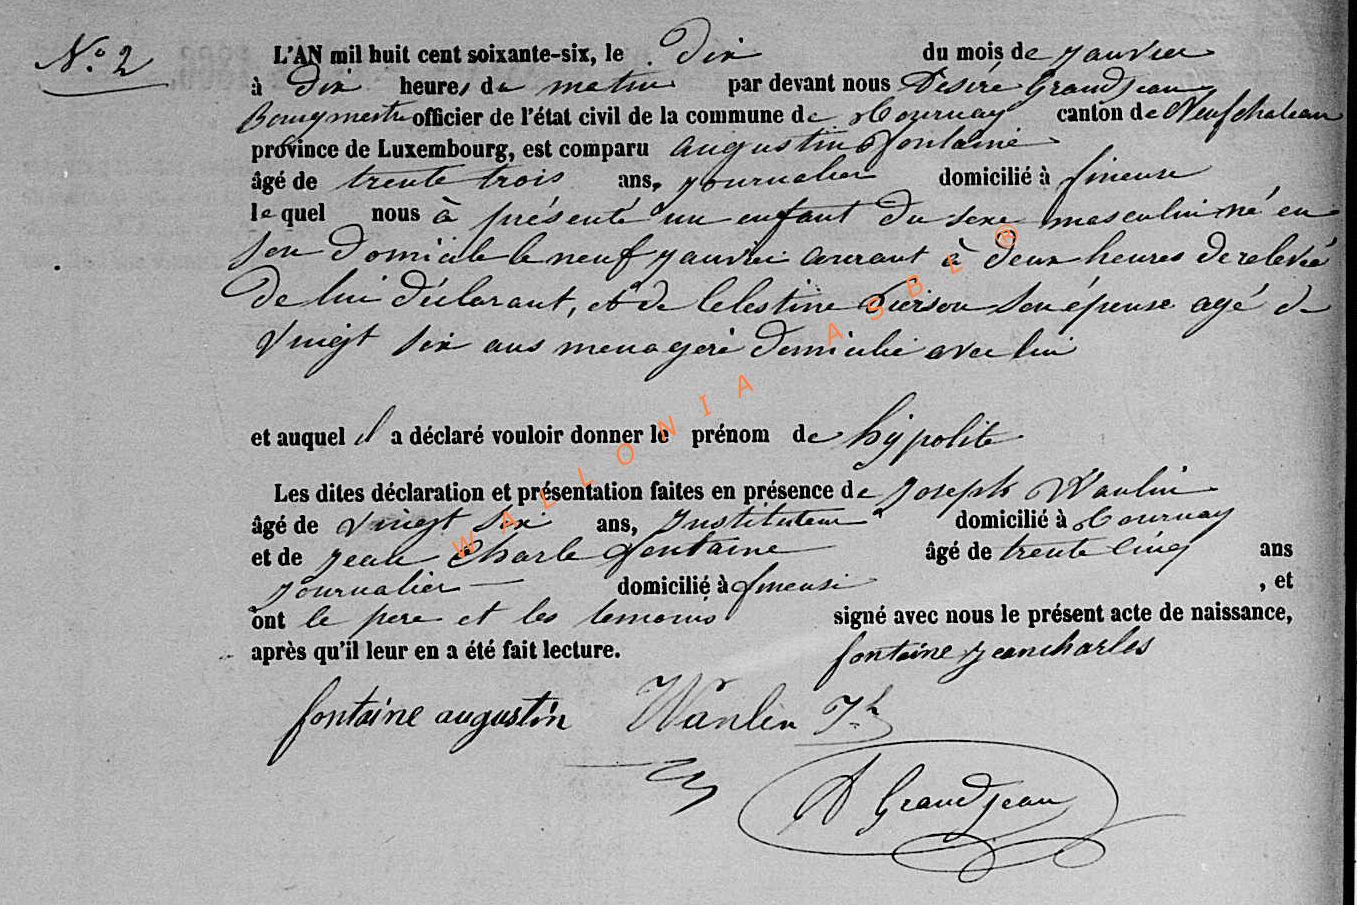 N.º 2
L'AN mil huit cent soixante-six, le dix du mois de janvier
à dix heures du matin par devant nous Désiré Grandjean
Bourgmestre officier de l'état civil de la commune de Tournay canton de Neufchateau
province de Luxembourg, est comparu augustin fontaine
âgé de trente trois ans, journalier domicilié à fineuse
lequel nous à présenté un enfant du sexe masculin né en
son domicile le neuf janvier courant à deux heures de relevé
de lui déclarant, et de Celestine son épouse agé de
vingt six ans menagere domicilié avec lui
et auquel il a déclaré vouloir donner le prénom de hypolite
Les dites déclaration et présentation faites en présence de Joseph Wanlin
âgé de vingt six ans, Instituteur domicilié à Tournay
et de jean Charle fontaine âgé de trente cinq ans
journalier domicilié à fineuse , et
ont le pere et les temoins signé avec nous le présent acte de naissance,
après qu'il leur en a été fait lecture.
fontaine jeancharles
fontaine augustin Wanlin Jh
D Grandjean
WALLONIA ASBL ®